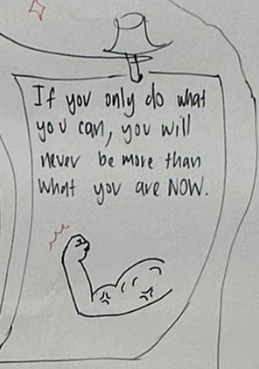 If you only do what
you can, you will
never be more than
what you are NOW.